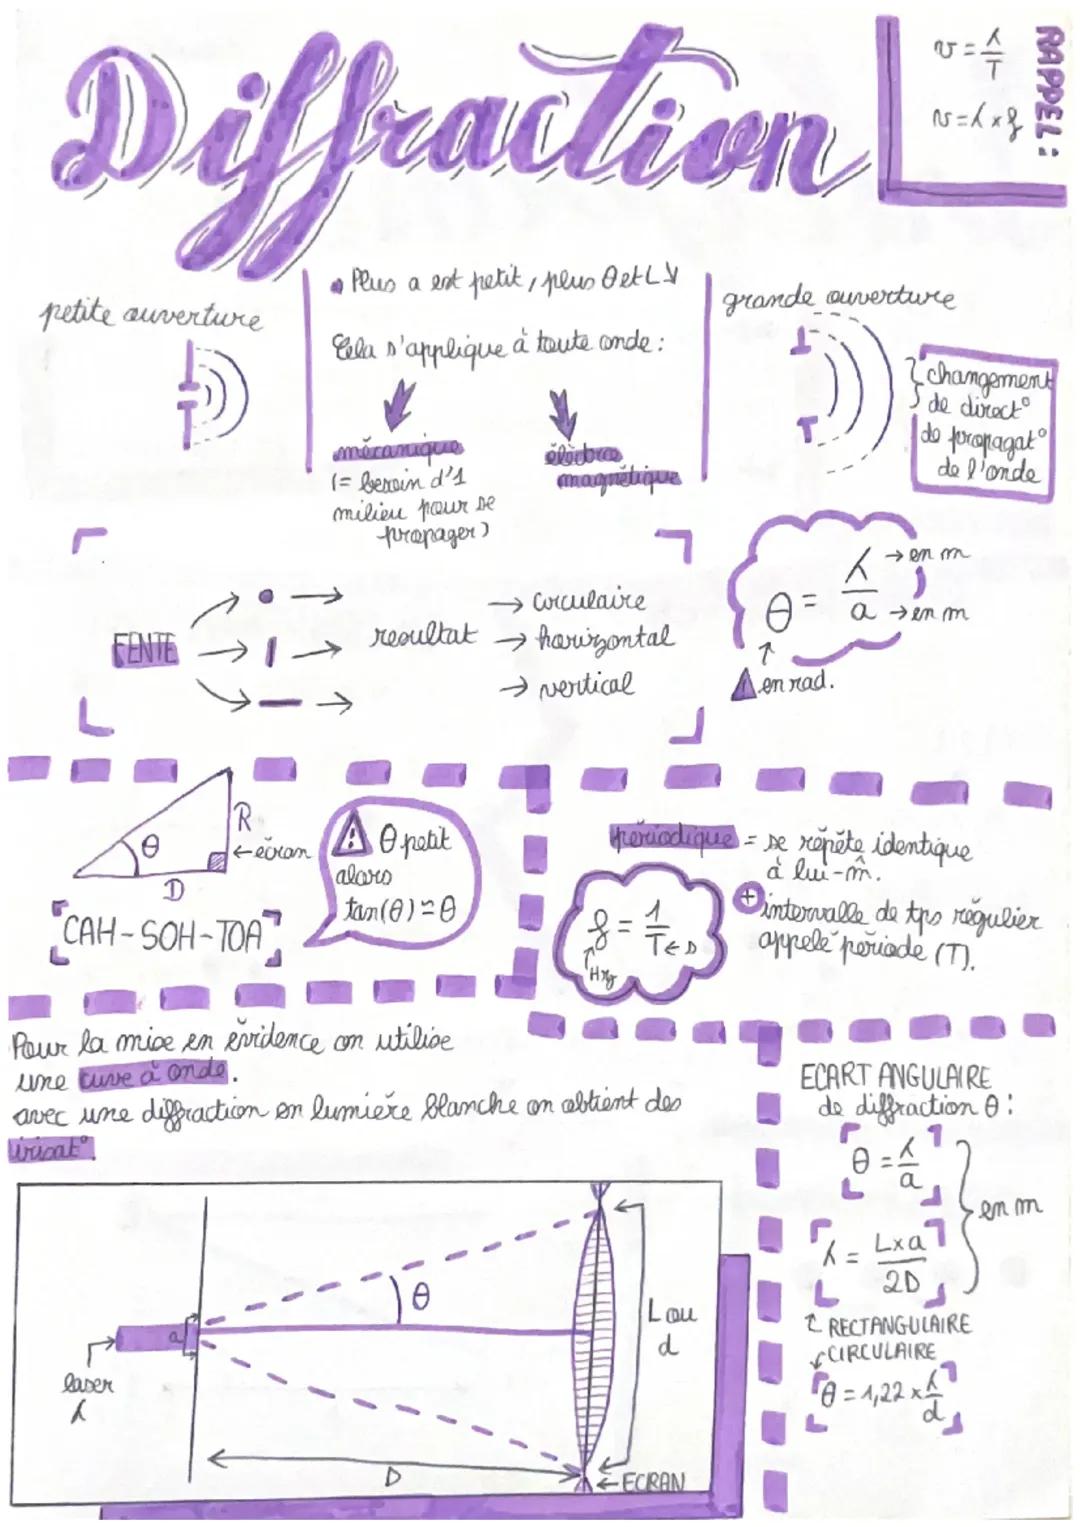 Diffraction
RAPPEL :
v = λ/T
v = λ × f
petite ouverture
• Plus a est petit, plus θ et L ↘
Cela s'applique à toute onde :
mécanique
(= besoin d'1
milieu pour se
propager)
électro
magnétique
grande ouverture
changement
de direct°
de propagat°
de l'onde
FENTE
resultat
→ circulaire
→ horizontal
→ vertical
θ = λ/a
→ en m
→ en m
en rad.
R
θ
← écran
D
CAH-SOH-TOA
! θ petit
alors
tan(θ) ≃ θ
périodique = se répète identique
à lui-m̂.
+ intervalle de tps régulier
appelé période (T).
f = 1/T ← s
Hz
Pour la mise en évidence on utilise
une cuve à onde.
avec une diffraction en lumière blanche on obtient des
irisat°.
ECART ANGULAIRE
de diffraction θ :
θ = λ/a
λ = L×a/2D
en m
RECTANGULAIRE
CIRCULAIRE
θ = 1,22 × λ/d
a
θ
L ou
d
laser
λ
D
← ECRAN